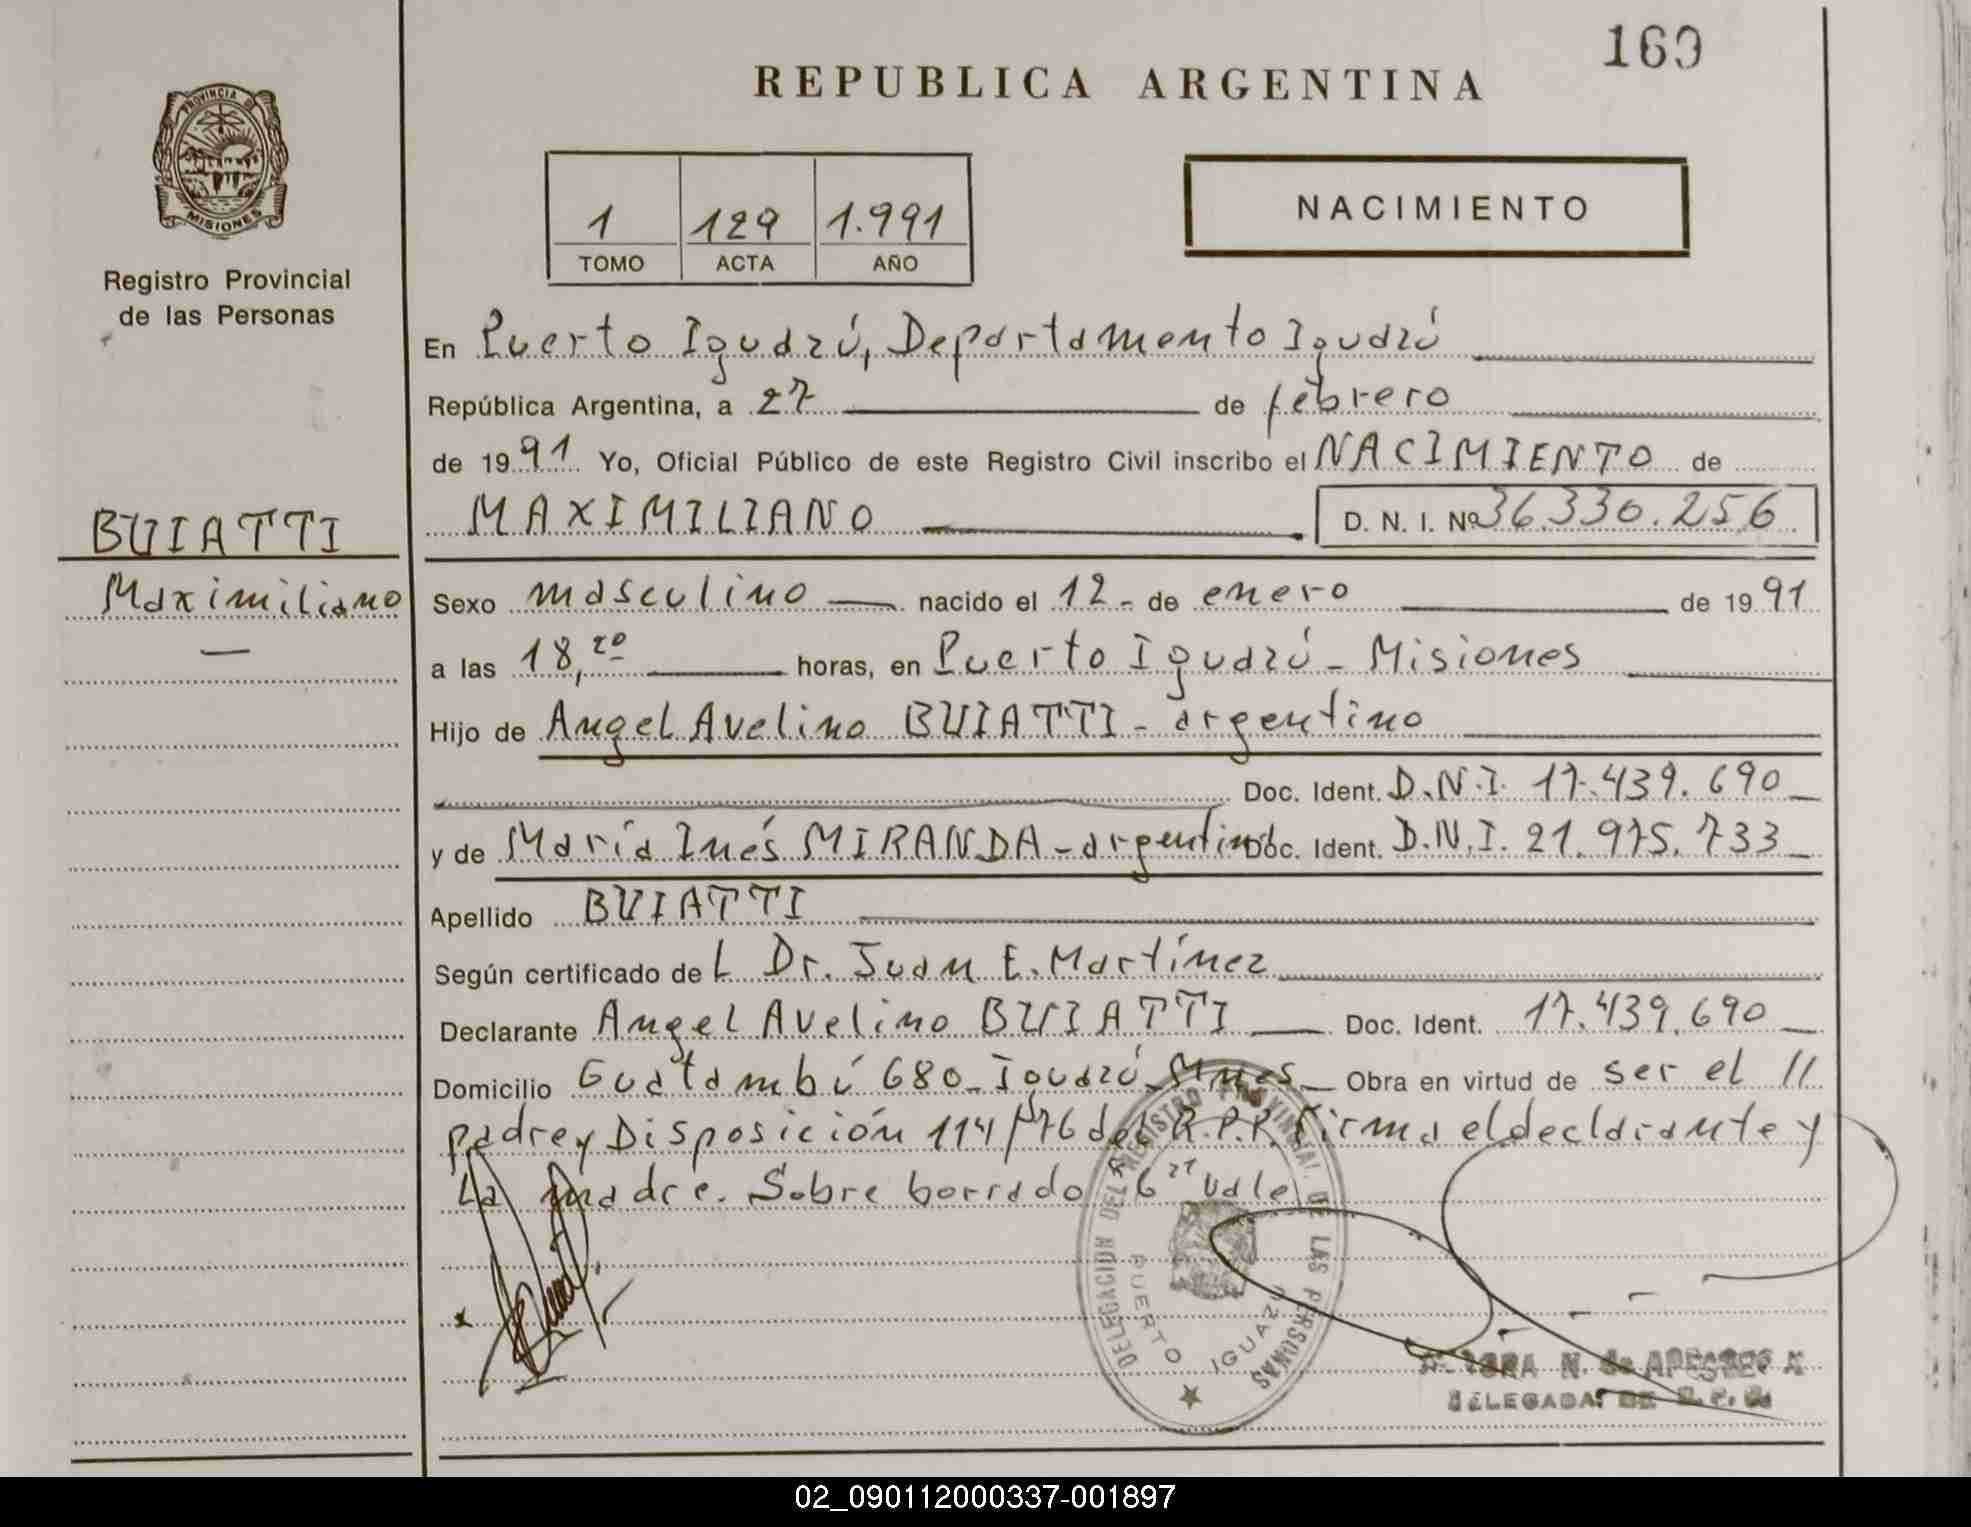 160
REPUBLICA ARGENTINA
PROVINCIA DE
MISIONES
Registro Provincial
de las Personas
1 129 1.991
TOMO ACTA AÑO
NACIMIENTO
En Puerto Iguazú, Departamento Iguazú
República Argentina, a 27 de febrero
de 1991 Yo, Oficial Público de este Registro Civil inscribo el NACIMIENTO de
MAXIMILIANO D. N. I. Nº 36.330.256
BUIATTI
Maximiliano
Sexo masculino nacido el 12 - de enero de 1991
a las 18,20 horas, en Puerto Iguazú - Misiones
Hijo de Angel Avelino BUIATTI - argentino
Doc. Ident. D.N.I. 17.439.690
y de María Inés MIRANDA - argentina Doc. Ident. D.N.I. 21.975.733
Apellido BUIATTI
Según certificado del Dr. Juan E. Martínez
Declarante Angel Avelino BUIATTI Doc. Ident. 17.439.690
Domicilio Guatambú 680 - Iguazú - Mnes Obra en virtud de ser el //
padre y Disposición 114/76 del R.P.P. Firma el declarante y
la madre. Sobre borrado 6 Vale
DELEGACION DEL REGISTRO PROVINCIAL DE LAS PERSONAS
PUERTO IGUAZU
N. de
DELEGADA DE R. P. P.
02_090112000337-001897